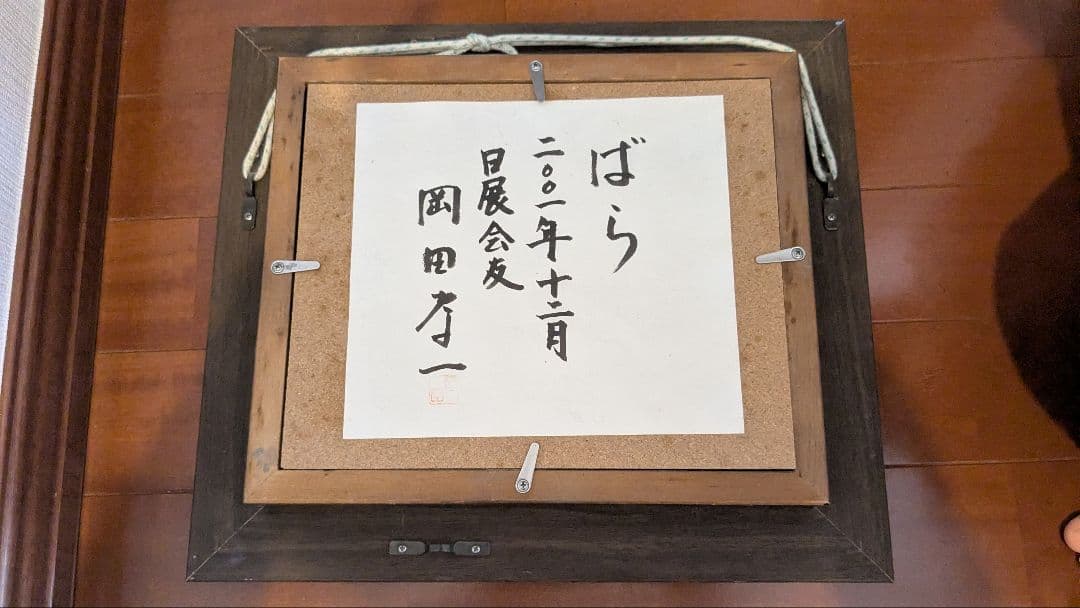 ばら
二〇〇一年十二月
日展会友
岡田孝一